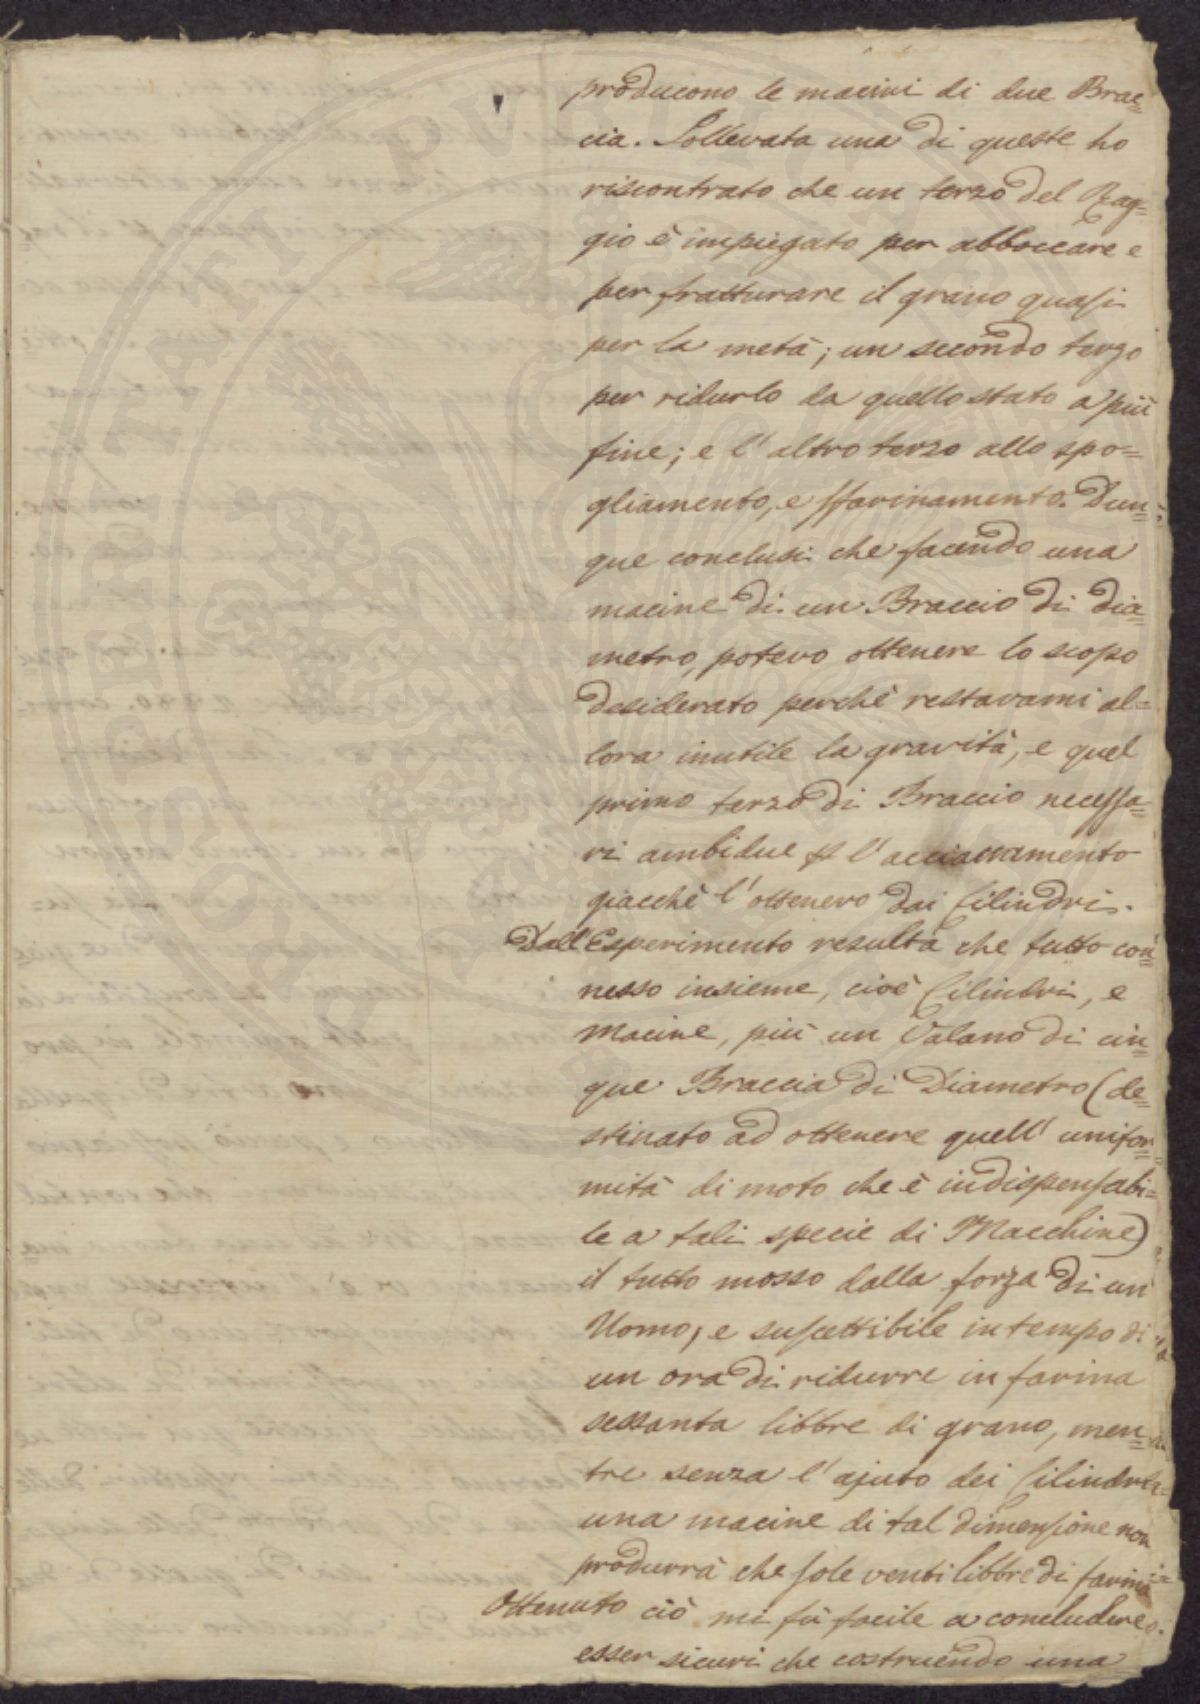 producono le macini di due Brac=
cia. Sollevata una di queste ho
riscontrato che un terzo del Rag=
gio è impiegato per abboccare e
per fratturare il grano quasi
per la metà; un secondo terzo
per ridurlo da quello stato a più
fine; e l'altro terzo allo spo=
gliamento, e sfarinamento. Dun=
que conclusi che facendo una
macine di un Braccio di dia=
metro, potevo ottenere lo scopo
desiderato perchè restavami al=
lora inutile la gravità, e quel
primo terzo di Braccio necessa=
ri ambidue p l'acciaccamento
giacchè l'ottenevo dai Cilindri.
Dall'Esperimento resulta che tutto con=
nesso insieme, cioè Cilindri, e
Macine, più un Volano di cin=
que Braccia di Diametro (de=
stinato ad ottenere quell'unifor=
mità di moto che è indispensabi=
le a tali specie di Macchine)
il tutto mosso dalla forza di un
Uomo, e suscettibile in tempo di
un ora di ridurre in farina
sessanta libbre di grano, men=
tre senza l'ajuto dei Cilindri
una macine di tal dimensione non
produrrà che sole venti libbre di farina
Ottenuto ciò mi fù facile a concludere
esser sicuri che costruendo una